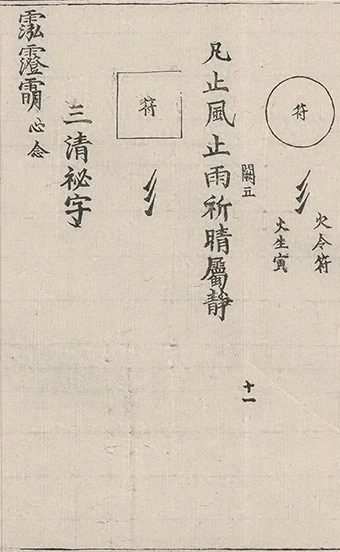 符
火令符
火生寅
闗五
十一
凡止風止雨祈晴屬靜
符
三清祕字
霐霪䨥心念